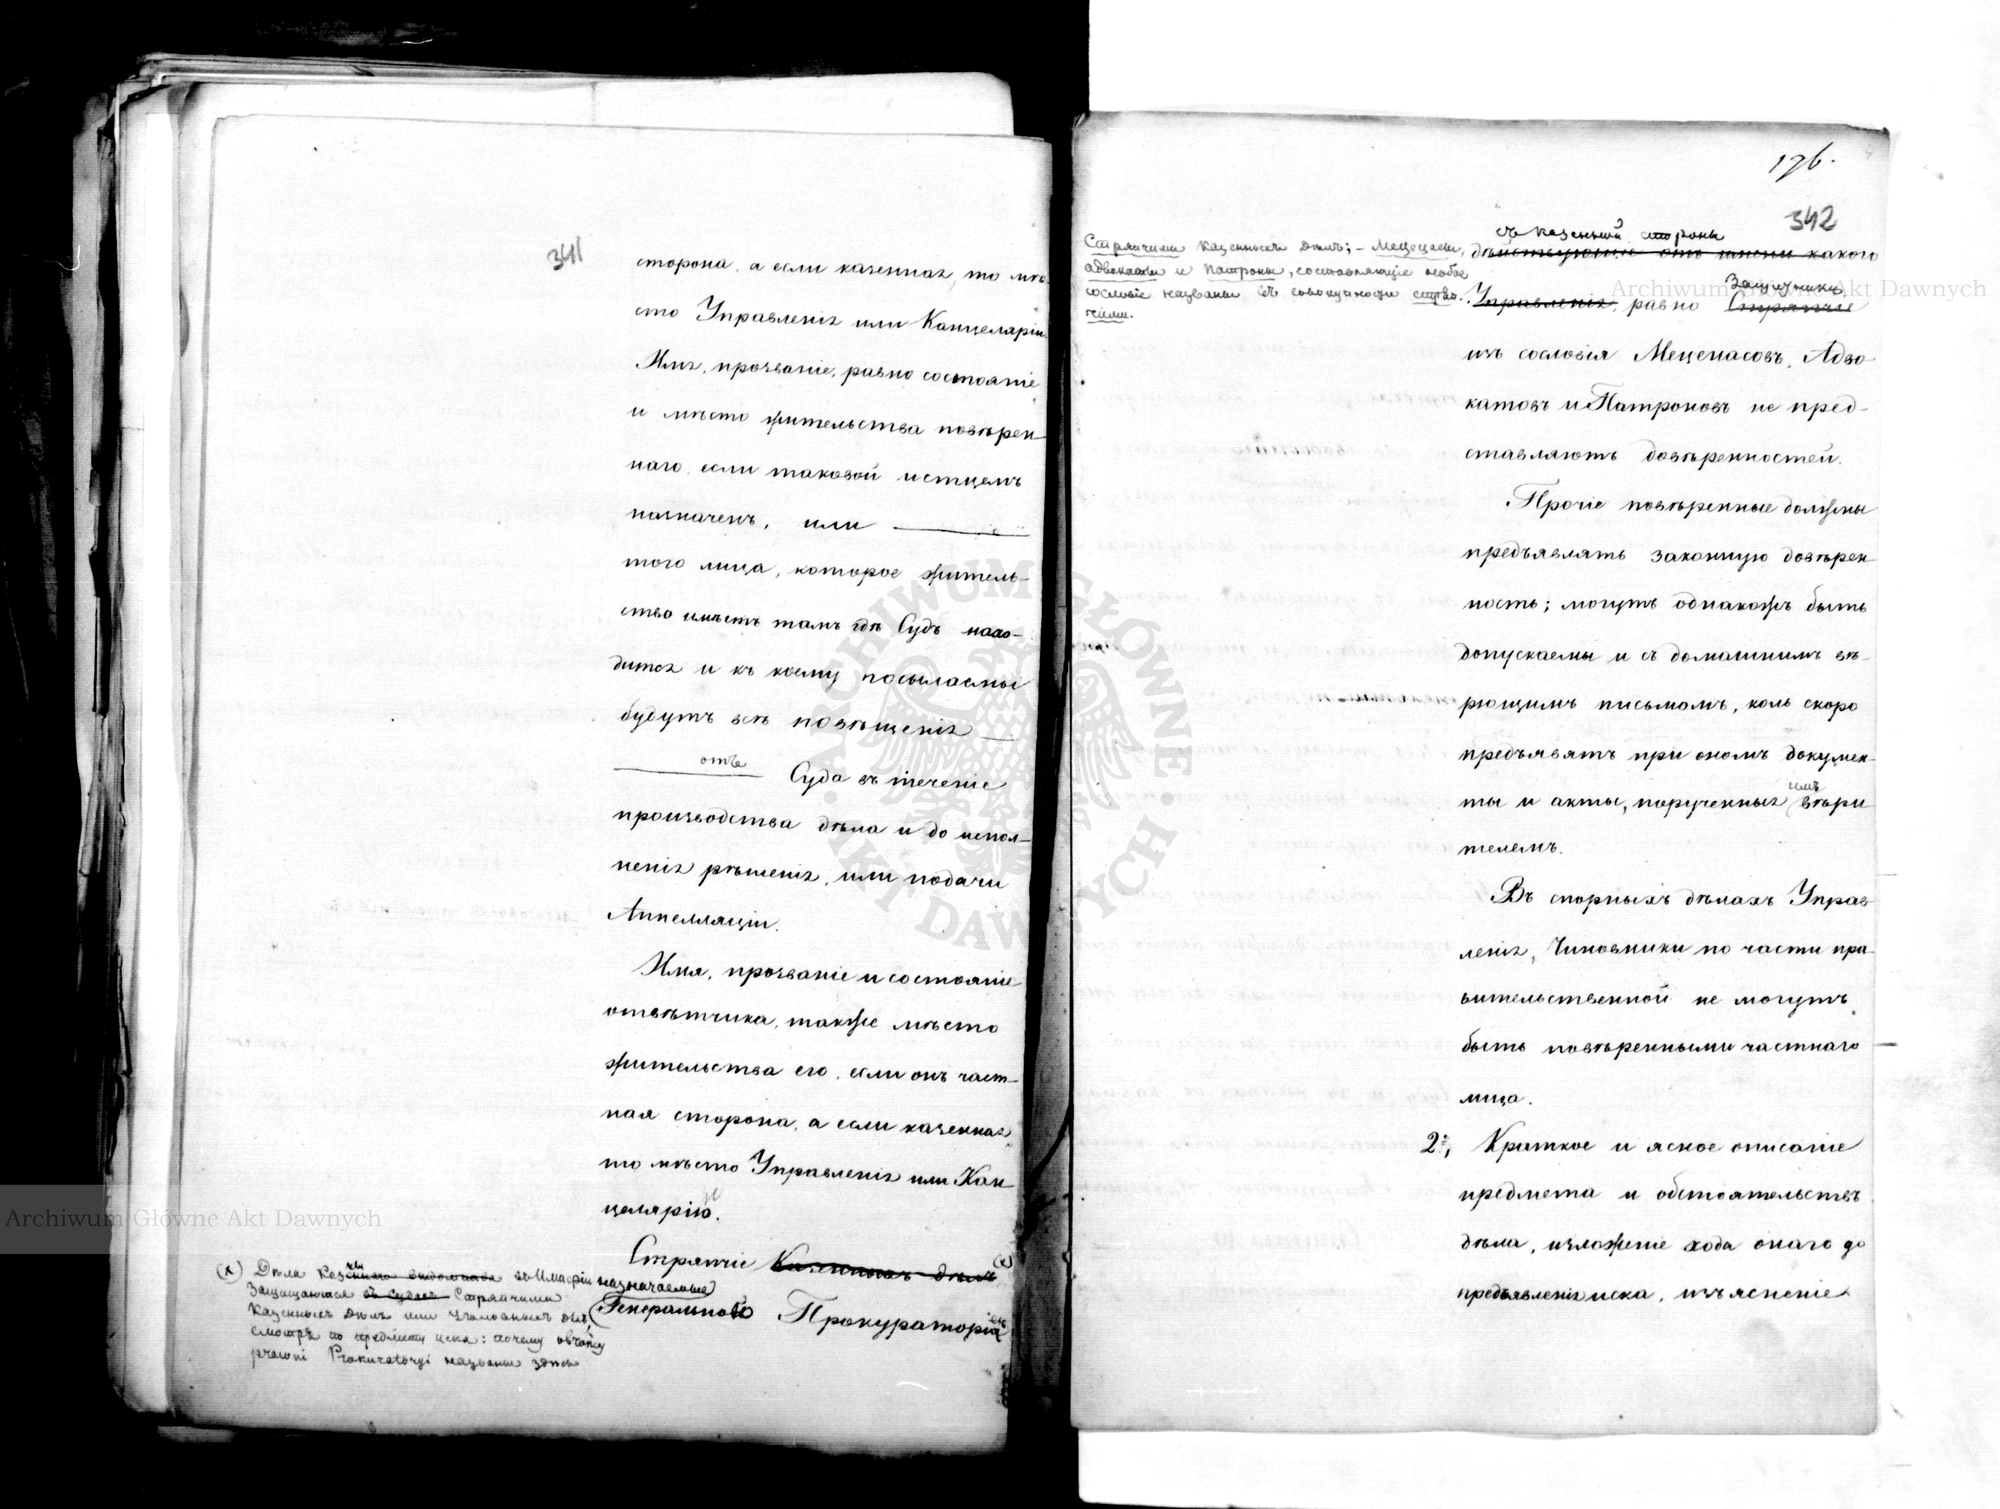 341
сторона, а если казенная, то мѣ-
сто Управленія или Канцеляріи.
Имя, прозваніе, равно состояніе
и мѣсто жительства повѣрен
наго, если таковой истцемъ
назначенъ, или
того лица, которое житель-
ство имѣетъ тамъ гдѣ Судъ нахо-
дится и къ коему посылаемы
будутъ всѣ повѣщенія
отъ
Суда въ теченіе
производства дѣла и до испол-
ненія рѣшенія, или подачи
Аппелляціи.
Имя, прозваніе и состояніе
отвѣтчика, также мѣсто
жительства его, если онъ част-
ная сторона, а если казенная,
то мѣсто Управленія или Кан
целярію.
Стряпчіе Казенныхъ дѣлъ (х)
назначаемые
Генеральною Прокураторіею
(х) Дѣла казны въ Имперіи
Защищаются въ судахъ Стряпчими
Казенныхъ дѣлъ или Уголовныхъ дѣлъ,
смотря по предмету иска: почему
Prokuratoryi названы здѣсь
176.
342
Стряпчими Казенныхъ дѣлъ; – Меценасы,
адвокаты и патроны, составляющіе особое
сословіе названы въ совокупности стряп-
чими.
съ казенной стороны
дѣйствующіе отъ имени какого
Защитники
Управленія, равно Стряпчіе
изъ сословія Меценасовъ, Адво
катовъ и Патроновъ не пред-
ставляютъ довѣренностей.
Прочіе повѣренные должны
предъявлять законную довѣрен
ность; могутъ однакожъ быть
допускаемы и съ домашнимъ вѣ-
рющимъ письмомъ, коль скоро
предъявятъ при ономъ докумен-
имъ
ты и акты, порученныя вѣри
телемъ.
Въ спорныхъ дѣлахъ Управ
ленія, Чиновники по части пра-
вительственной не могутъ
быть повѣренными частнаго
лица.
2:, Краткое и ясное описаніе
предмета и обстоятельствъ
дѣла, изложеніе хода онаго до
предъявленія иска, изъясненіе
Archiwum Główne Akt Dawnych
Archiwum Główne Akt Dawnych
ARCHIWUM GŁÓWNE AKT DAWNYCH